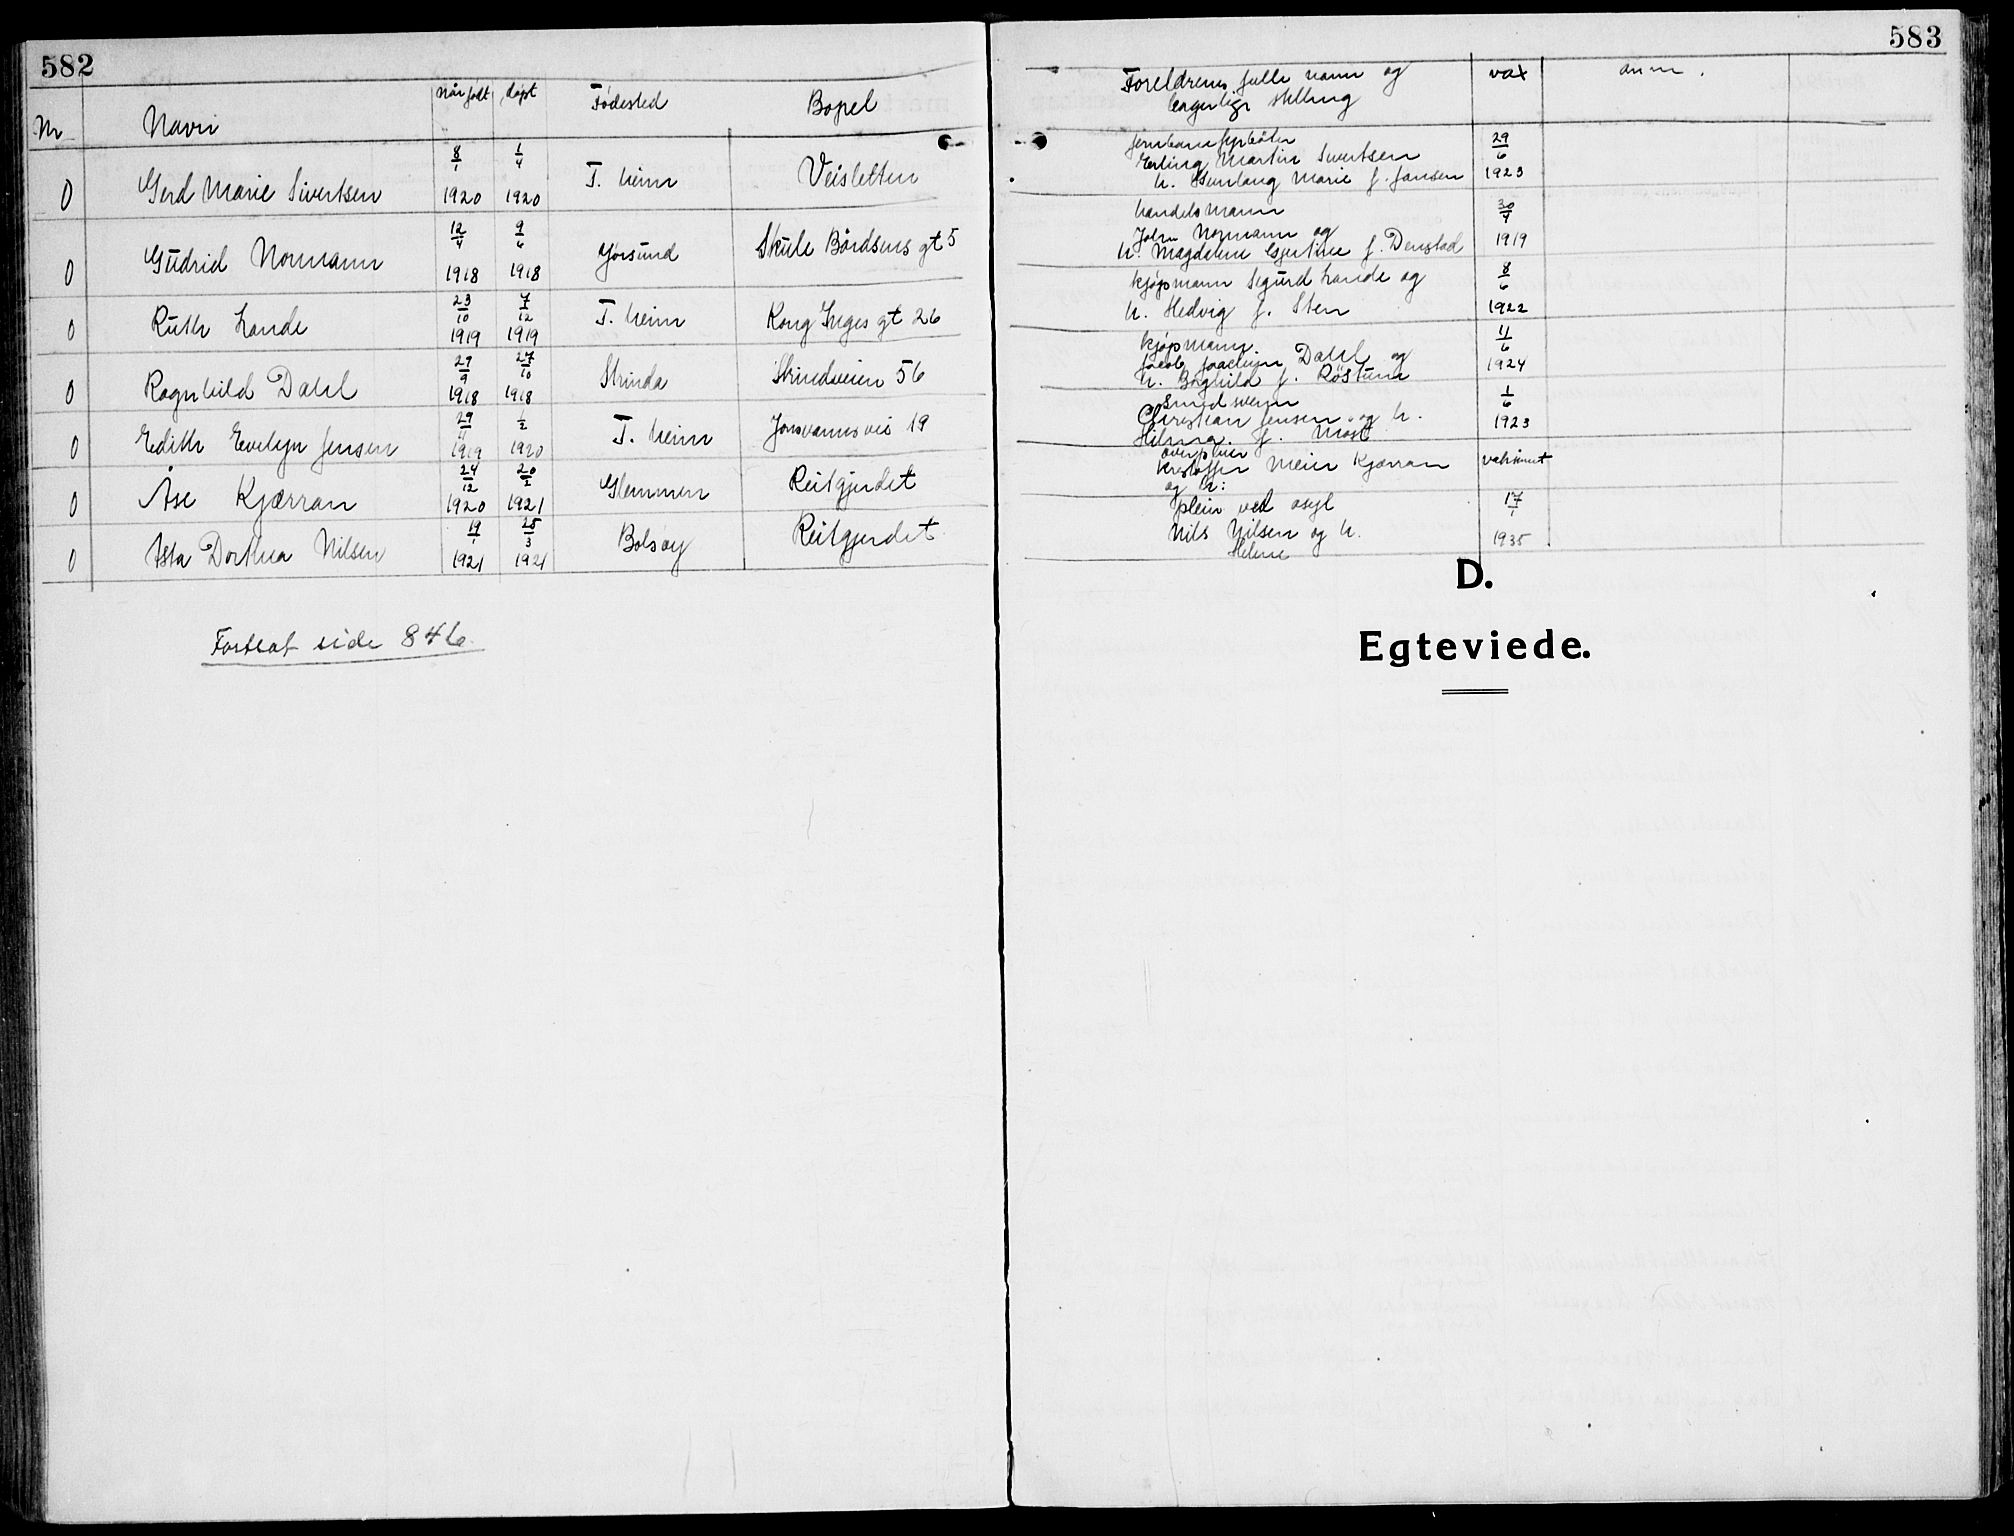 582
Nr Navn når født døpt Fødested Bopel
0 Gerd Marie Sivertsen 8/1 1920 1/4 1920 T. heim Veisletten
0 Gudrid Normann 12/4 1918 9/6 1918 Gjørsund Skule Bårdsens gt 5
0 Ruth Lande 23/10 1919 7/12 1919 T. heim Kong Inges gt 26
0 Ragnhild Dahl 29/9 1918 27/10 1918 Strinda Strindveien 56
0 Edith Evelyn Jensen 29/11 1919 1/2 1920 T. heim Jonsvannsvei 19
0 Åse Kjærran 24/12 1920 20/2 1921 Glemmen Reitgjerdet
0 Asta Dorthea Nilsen 19/1 1921 25/3 1921 Bolsøy Reitgjerdet
Fortsat side 846
583
Foreldrenes fulle navn og vax anm.
borgerlige stilling
29/6
Erling Martin Sivertsen
h. Gunlaug Marie f. Jansen 1923
handelsmann 30/4
John Normann og 1919
h. Magdelene Gjertine f. Denstad
kjøpmann Sigurd Lande og 8/6
h. Hedvig f. Sten 1922
kjøpmann 11/6
Jacob Joachim Dahl og 1924
h. Borghild f. Røstum
smedsvenn 1/6
Christian Jensen og h. 1923
Hilma f. Most
overpleier
Kristoffer Meier Kjærran vaksinert
og h:
pleier ved asyl 17/1
Nils Nilsen og h. 1935
Helene
D.
Egteviede.